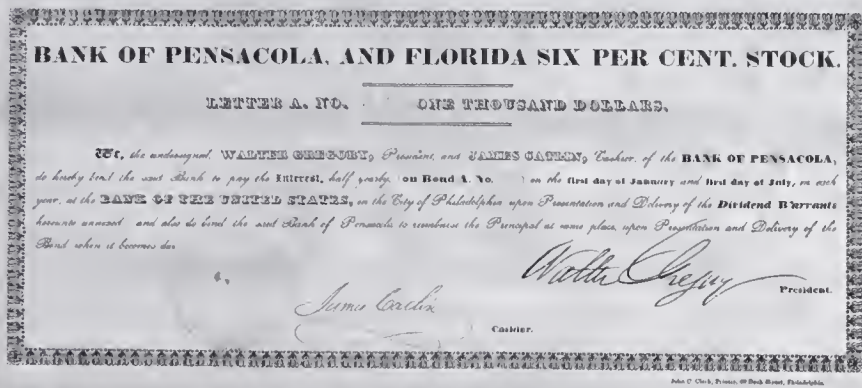 BANK OF PENSACOLA, AND FLORIDA SIX PER CENT. STOCK.
LETTER A. NO. ONE THOUSAND DOLLARS.
We, the undersigned, WALTER GREGORY, President, and JAMES CATLIN, Cashier, of the BANK OF PENSACOLA,
do hereby bind the said Bank to pay the Interest, half yearly, (on Bond A. No. ) on the first day of January and first day of July, in each
year, at the BANK OF THE UNITED STATES, in the City of Philadelphia upon Presentation and Delivery of the Dividend Warrants
hereunto annexed and also do bind the said Bank of Pensacola to reimburse the Principal at same place, upon Presentation and Delivery of the
Bond when it becomes due
Walter Gregory
President.
James Catlin
Cashier.
John C. Clark, Printer, 60 Dock Street, Philadelphia.